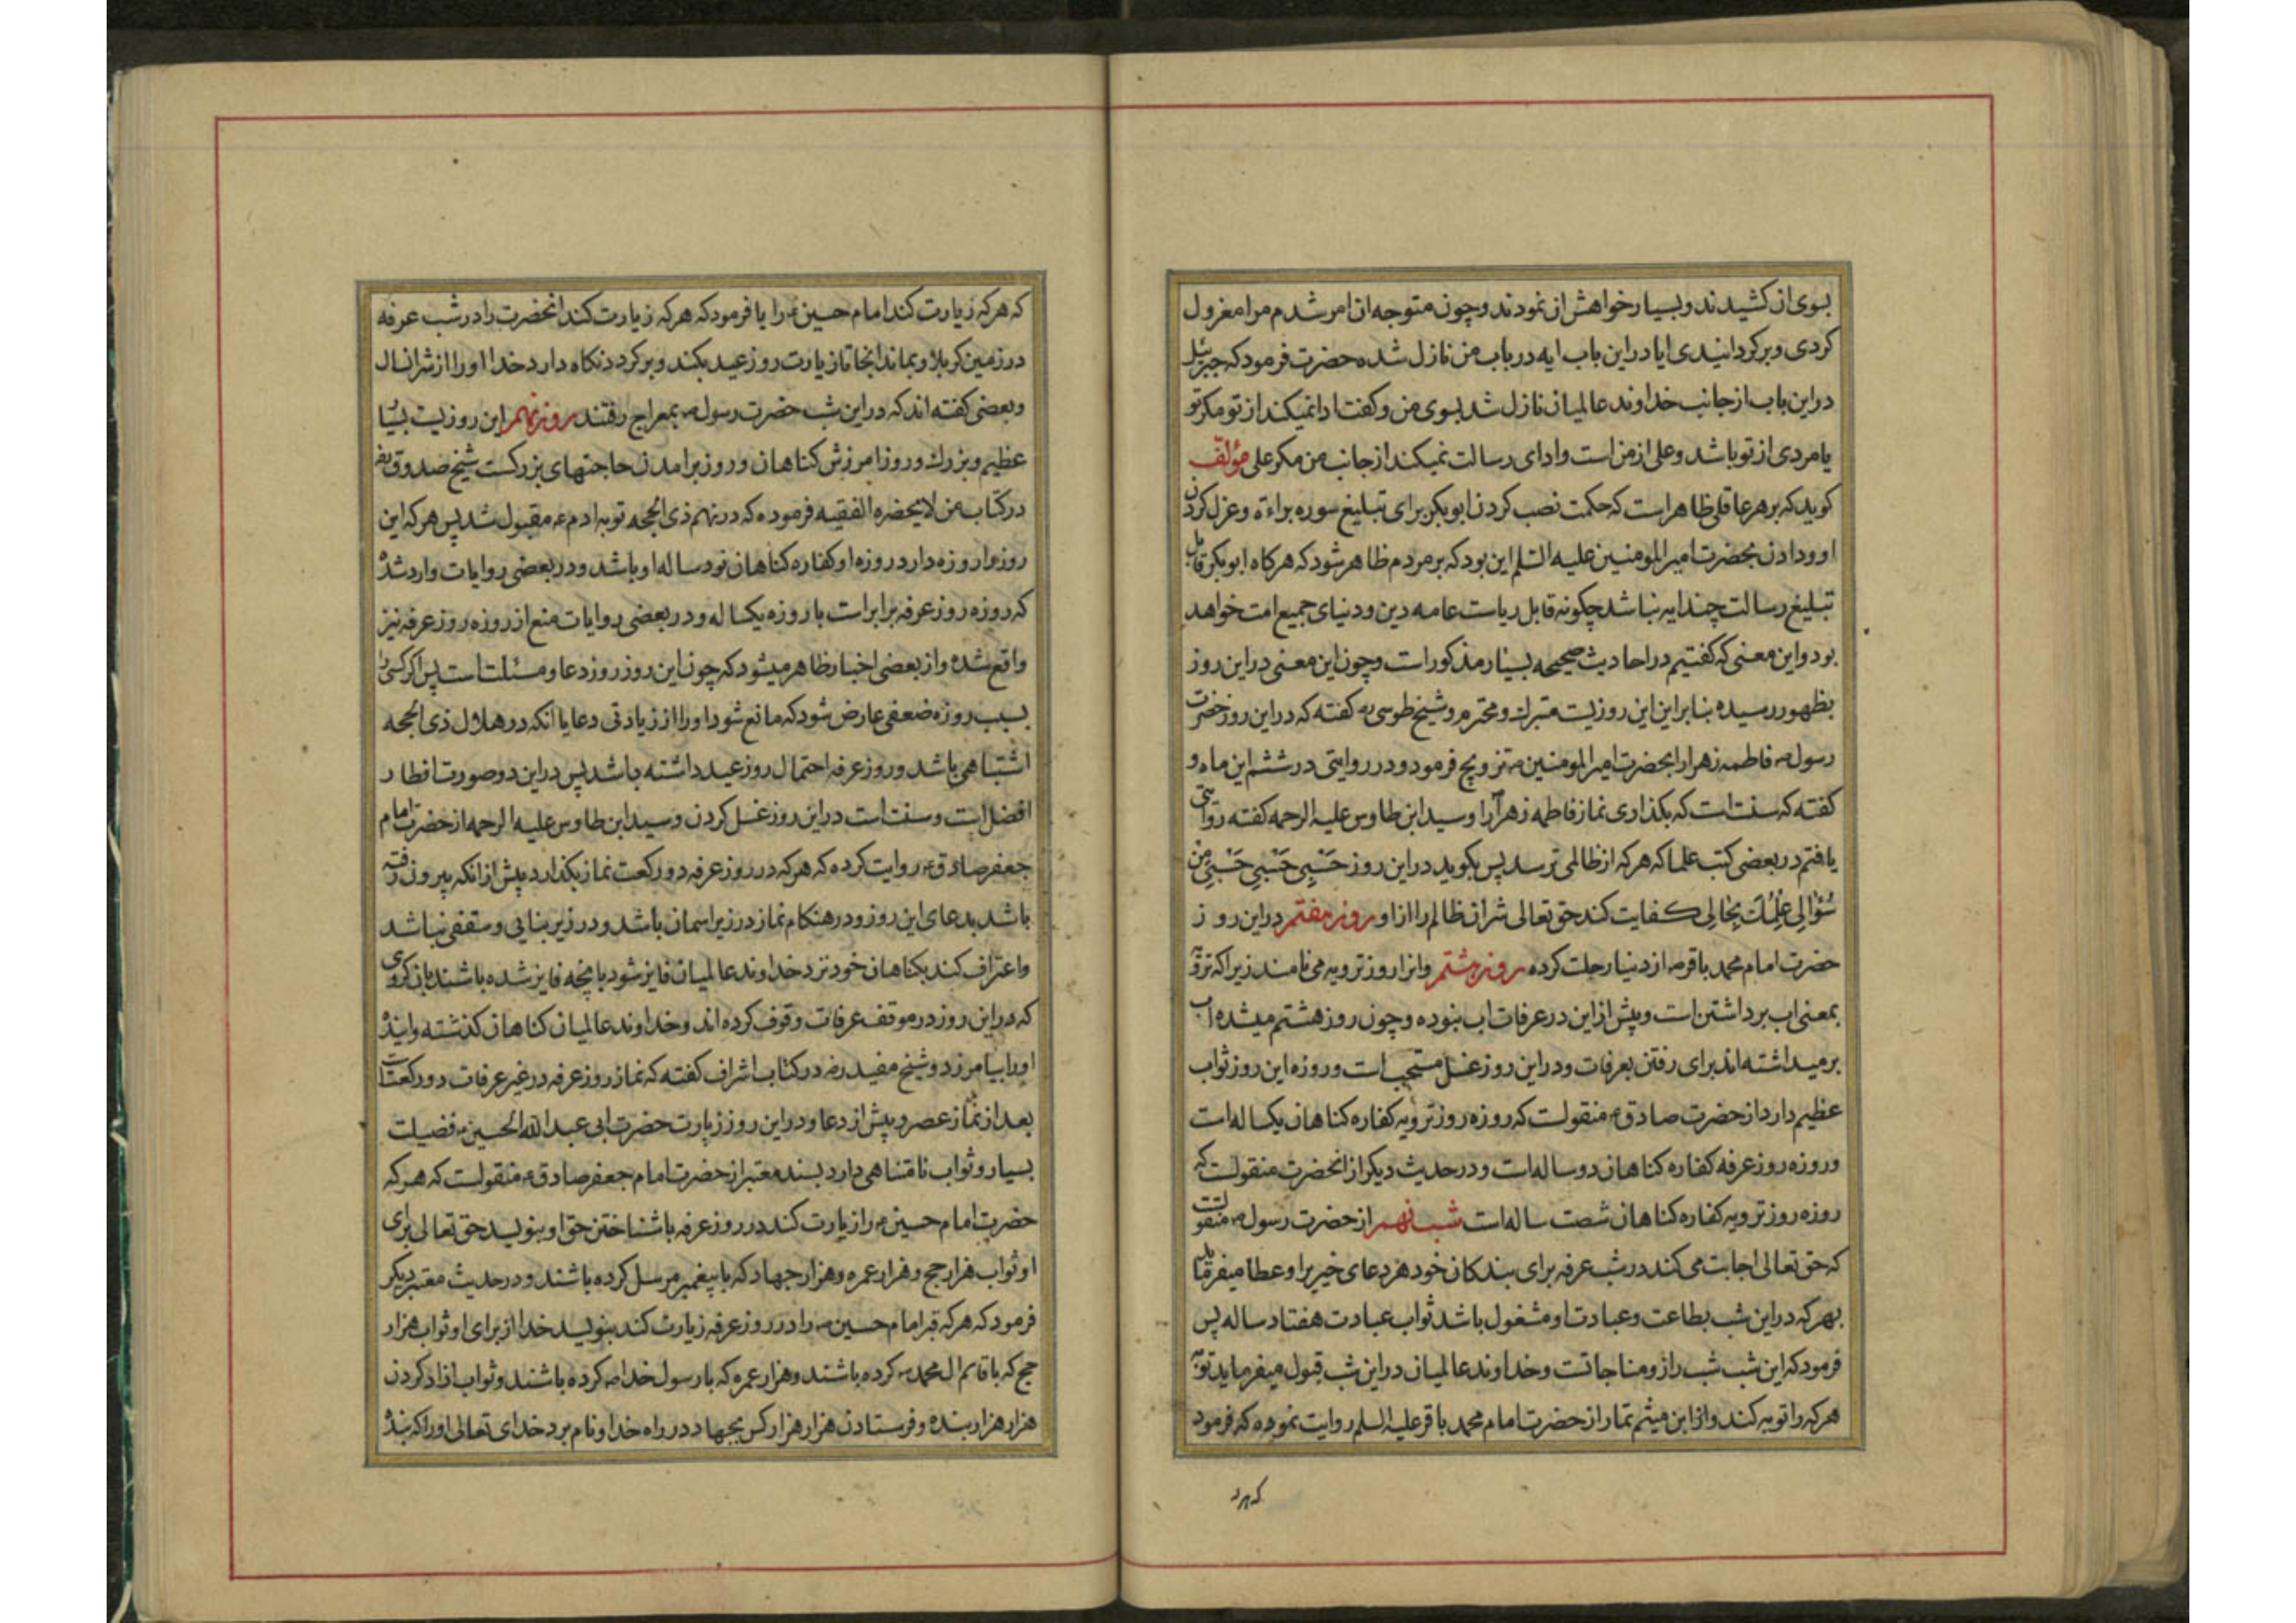 بسوی ان کشیدند و بسیار خواهش ان نمودند و چون متوجه ان امر شدم مرا معزول
کردی و برکردانیدی ایا در این باب ایه در باب من نازل شده حضرت فرمود که جبرئیل
در این باب از جانب خداوند عالمیان نازل شد بسوی من و کفت ادا نمیکند از تو مکر تو
یا مردی از تو باشد و علی از من است و ادای رسالت نمیکند از جانب من مکر علی مؤلف
کوید که بر هر عاقلی ظاهر است که حکمت نصب کردن ابوبکر برای تبلیغ سوره براءة و عزل کردن
او و دادن بحضرت امیر المومنین علیه السلم این بود که بر مردم ظاهر شود که هرکاه ابوبکر قابل
تبلیغ رسالت چند ایه نباشد چکونه قابل ریاست عامه دین و دنیای جمیع امت خواهد
بود و این معنی که کفتیم در احادیث صحیحه بسیار مذکور است و چون این معنی در این روز
بظهور رسیده بنابراین این روزیست متبرك و محترم و شیخ طوسی ره کفته که در این روز حضرت
رسول ص فاطمه زهرا را بحضرت امیر المومنین ع تزویج فرمود و در روایتی در ششم این ماه و
کفته که سنت است که بکذاری نماز فاطمه زهرا را و سید ابن طاوس علیه الرحمه کفته روایتی
یافتم در بعضی کتب علما که هرکه از ظالمی ترسد پس بکوید در این روز حَسْبِی حَسْبِی حَسْبِی مِن
سُؤالِی عِلْمُكَ بِحالِی کفایت کند حق تعالی شر ان ظالم را از او روز هفتم در این روز
حضرت امام محمد باقر ع از دنیا رحلت کرده روز هشتم و انرا روز ترویه می نامند زیرا که ترویه
بمعنی اب برداشتن است و پیش از این در عرفات اب نبوده و چون روز هشتم میشده اب
برمیداشته اند برای رفتن بعرفات و در این روز غسل مستحب است و روزه این روز ثواب
عظیم دارد از حضرت صادق ع منقولست که روزه روز ترویه کفاره کناهان یکساله است
و روزه روز عرفه کفاره کناهان دو ساله است و در حدیث دیکر از انحضرت منقولست که
روزه روز ترویه کفاره کناهان شصت ساله است شب نهم از حضرت رسول ص منقولست
که حق تعالی اجابت می کند در شب عرفه برای بندکان خود هر دعای خیر برا و عطا میفرماید
بهرکه در این شب بطاعت و عبادت او مشغول باشد ثواب عبادت هفتاد ساله پس
فرمود که این شب شب راز و مناجاتست و خداوند عالمیان در این شب قبول میفرماید توبه
هرکه را توبه کند و از ابن میثم تمار از حضرت امام محمد باقر علیه السلم روایت نموده که فرمود
که هرکه
که هرکه زیارت کند امام حسین ع را یا فرمود که هرکه زیارت کند انحضرت را در شب عرفه
در زمین کربلا و بماند انجا تا زیارت روز عید بکند و برکردد نکاه دارد خدا او را از شر انسال
و بعضی کفته اند که در این شب حضرت رسول ص بمعراج رفتند روز نهم این روزیست بسیار
عظیم و بزرك و روز امرزش کناهان و روز برامدن حاجتهای بزرکست شیخ صدوق ره
در کتاب من لایحضره الفقیه فرموده که در نهم ذی الحجه توبه ادم ع مقبول شد پس هرکه این
روز را روزه دارد روزه او کفاره کناهان نود ساله او باشد و در بعضی روایات وارد شده
که روزه روز عرفه برابر است با روزه یکساله و در بعضی روایات منع از روزه روز عرفه نیز
واقع شده و از بعضی اخبار ظاهر میشود که چون این روز روز دعا و مسئلت است پس اکر کسی را
بسبب روزه ضعفی عارض شود که مانع شود او را از زیادتی دعا یا انکه در هلال ذی الحجه
اشتباهی باشد و روز عرفه احتمال روز عید داشته باشد پس در این دو صورت افطار
افضل است و سنت است در این روز غسل کردن و سید ابن طاوس علیه الرحمه از حضرت امام
جعفر صادق ع روایت کرده که هرکه در روز عرفه دو رکعت نماز بکذارد پیش از انکه بیرون رفته
باشد بدعای این روز و در هنکام نماز در زیر اسمان باشد و در زیر بنایی و سقفی نباشد
و اعتراف کند بکناهان خود نزد خداوند عالمیان فایز شود بانچه فایز شده باشند بان کروهی
که در این روز در موقف عرفات وقوف کرده اند و خداوند عالمیان کناهان کذشته و اینده
او را بیامرزد و شیخ مفید ره در کتاب اشراف کفته که نماز روز عرفه در غیر عرفات دو رکعت است
بعد از نماز عصر و پیش از دعا و در این روز زیارت حضرت ابی عبد الله الحسین ع فضیلت
بسیار و ثواب نامتناهی دارد بسند معتبر از حضرت امام جعفر صادق ع منقولست که هرکه
حضرت امام حسین ع را زیارت کند در روز عرفه باشناختن حق او بنویسد حق تعالی برای
او ثواب هزار حج و هزار عمره و هزار جهاد که با پیغمبر مرسل کرده باشند و در حدیث معتبر دیکر
فرمود که هرکه قبر امام حسین ع را در روز عرفه زیارت کند بنویسد خدا از برای او ثواب هزار
حج که با قایم ال محمد ص کرده باشند و هزار عمره که با رسول خدا ص کرده باشند و ثواب ازاد کردن
هزار هزار بنده و فرستادن هزار هزار کس بجهاد در راه خدا و نام برد خدای تعالی او را که بنده